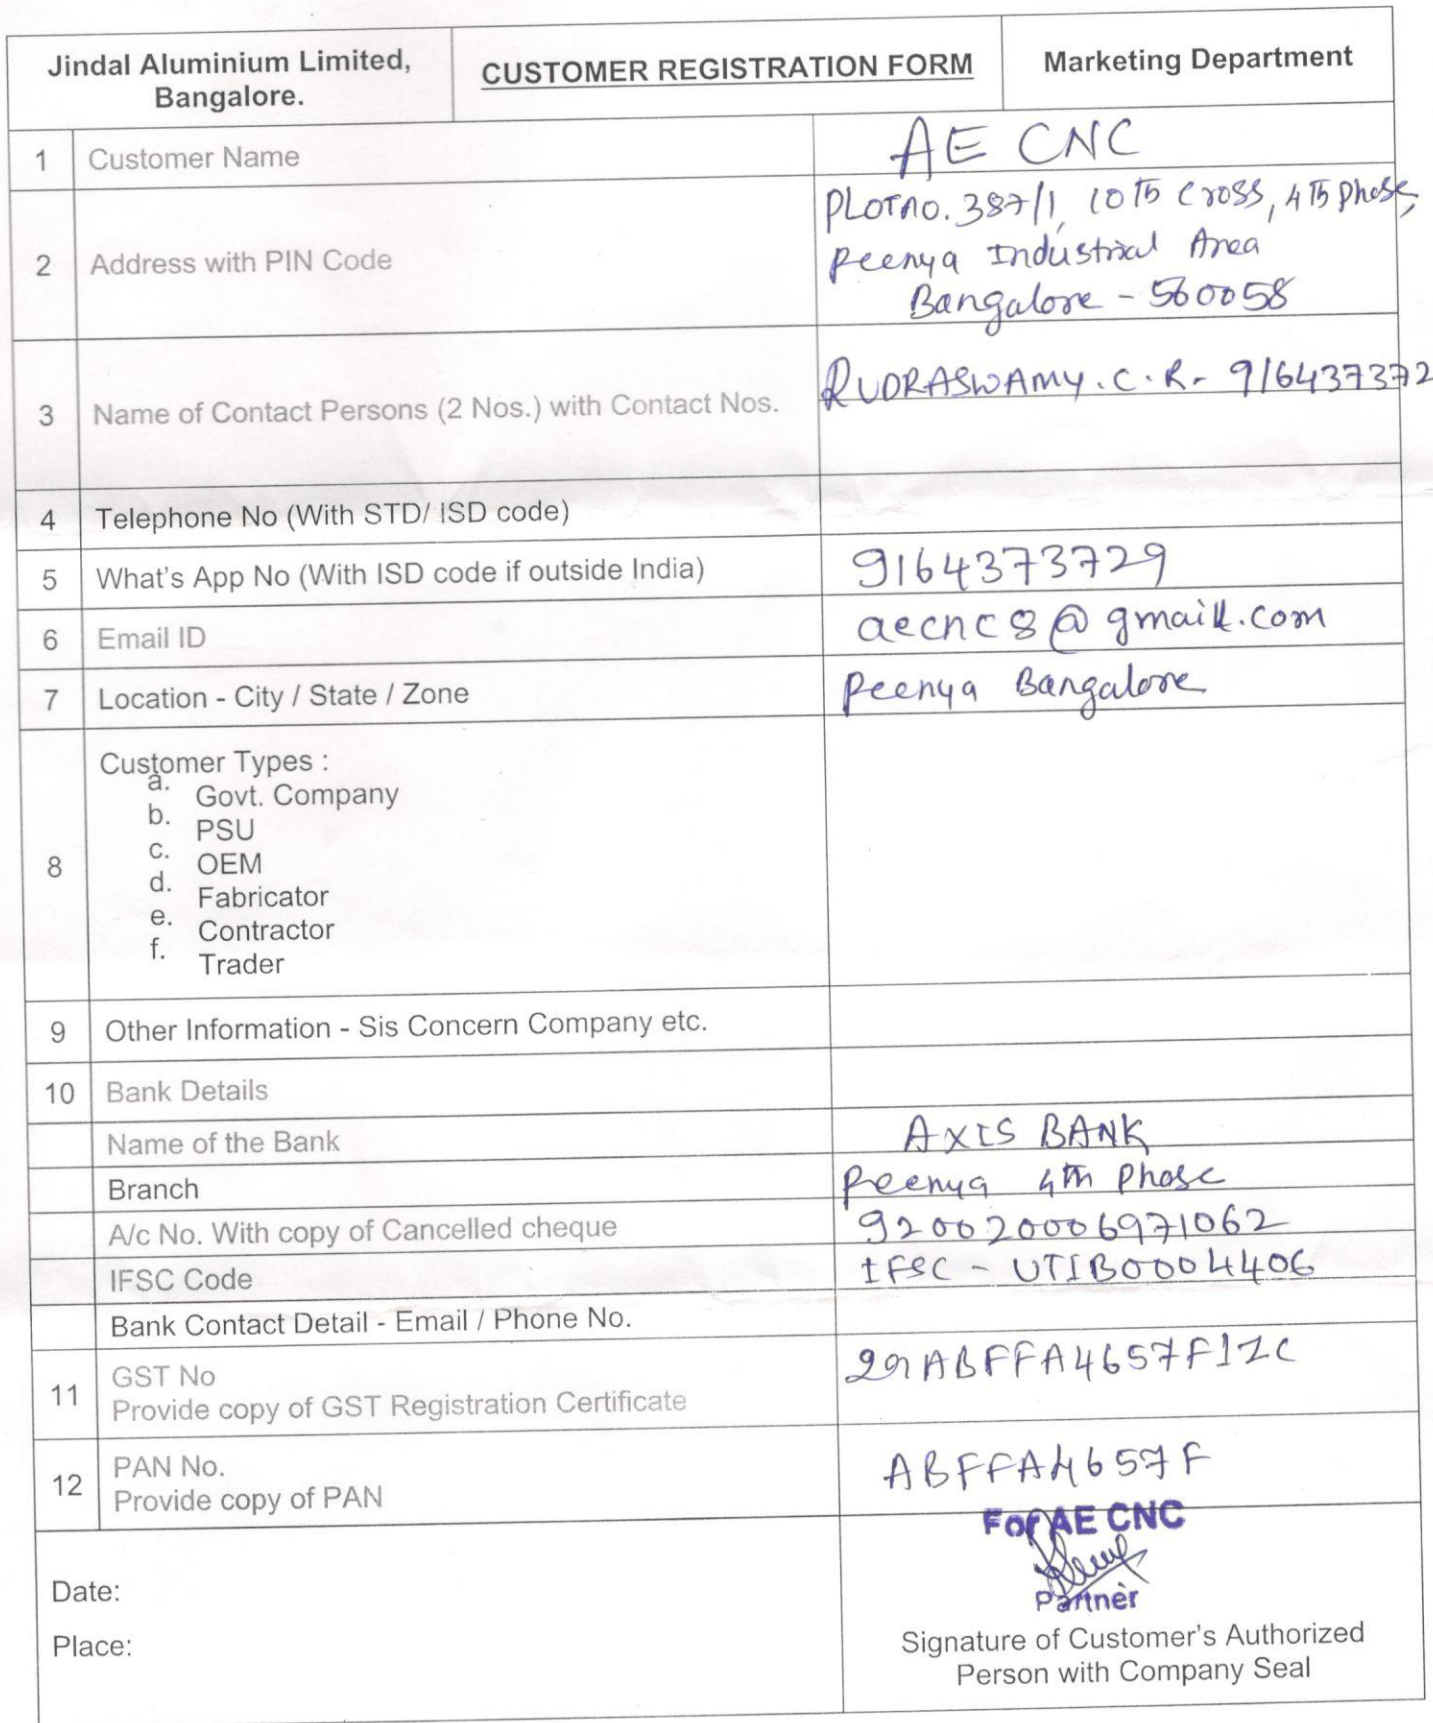 Jindal Aluminium Limited,
Bangalore.
CUSTOMER REGISTRATION FORM
Marketing Department
1 Customer Name AE CNC
2 Address with PIN Code
PLOT no. 387/1, 10th Cross, 4th Phase,
Peenya Industrial Area
Bangalore - 560058
3 Name of Contact Persons (2 Nos.) with Contact Nos. RUDRASWAMY.C.R- 916437372
4 Telephone No (With STD/ ISD code)
5 What's App No (With ISD code if outside India) 9164373729
6 Email ID aecnc8@gmail.com
7 Location - City / State / Zone Peenya Bangalore
8 Customer Types :
a. Govt. Company
b. PSU
c. OEM
d. Fabricator
e. Contractor
f. Trader
9 Other Information - Sis Concern Company etc.
10 Bank Details
Name of the Bank AXIS BANK
Branch Peenya 4th Phase
A/c No. With copy of Cancelled cheque 920020006971062
IFSC Code IFSC - UTIB0004406
Bank Contact Detail - Email / Phone No.
11 GST No 29ABFFA4657F1ZC
Provide copy of GST Registration Certificate
12 PAN No. ABFFA4657F
Provide copy of PAN
For AE CNC
Partner
Date:
Place:
Signature of Customer's Authorized
Person with Company Seal